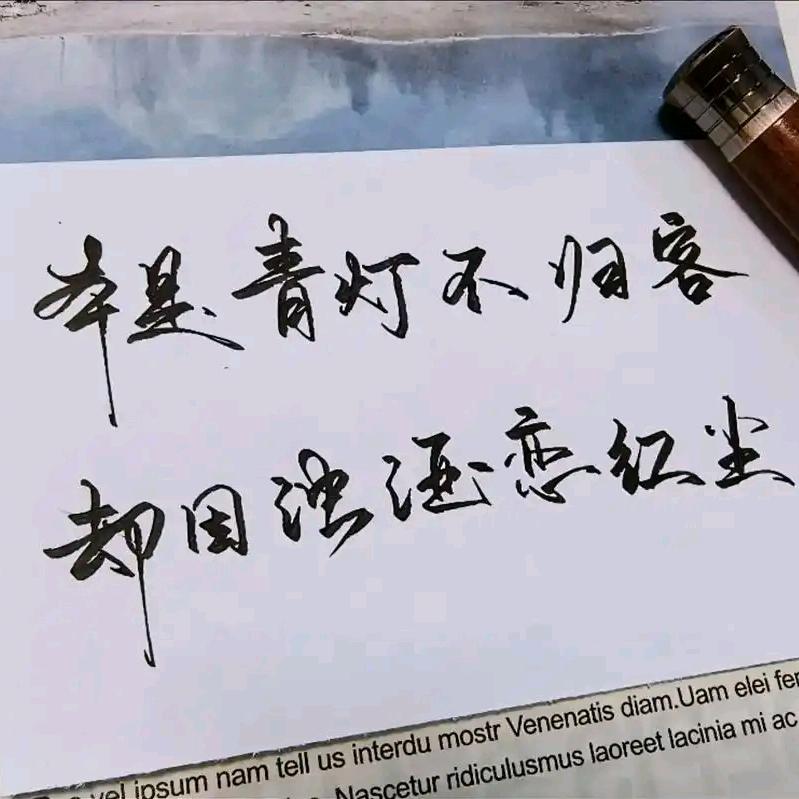 本是青灯不归客
却因浊酒恋红尘
vel ipsum nam tell us interdu mostr Venenatis diam.Uam elei
Nascetur ridiculusmus laoreet lacinia mi ac